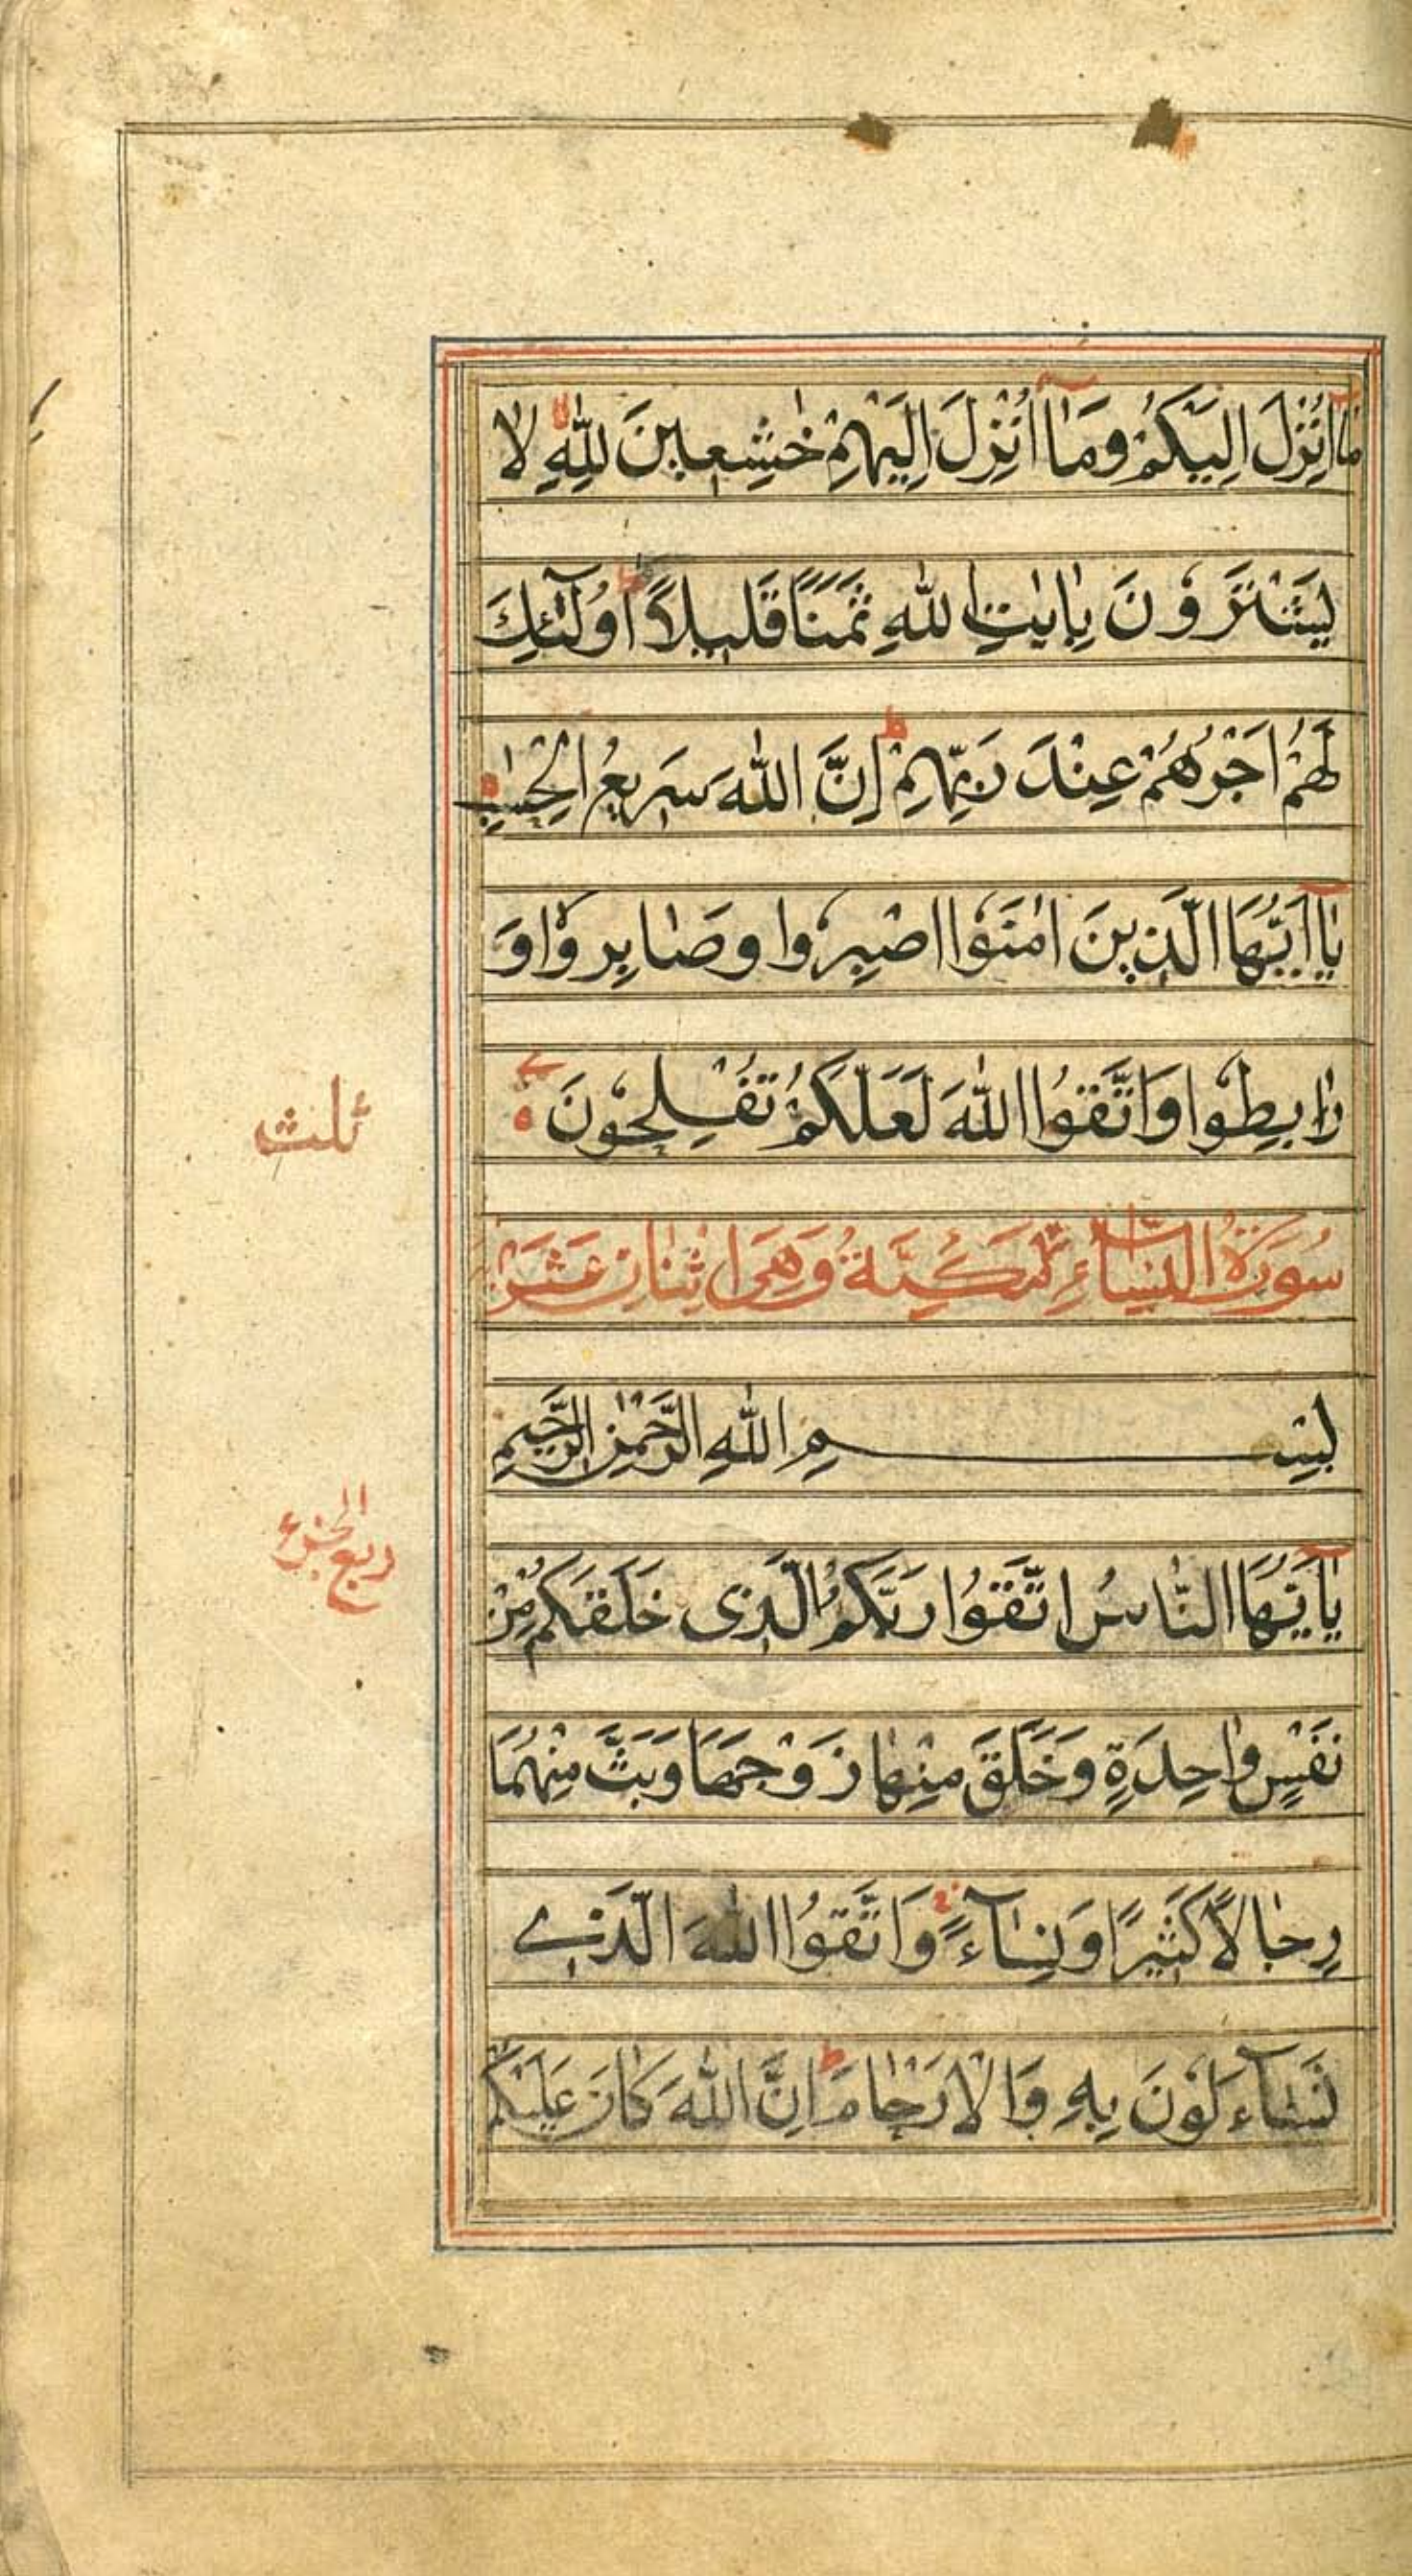 مَآ اُنْزِلَ اِلَيْكُمْ وَمَآ اُنْزِلَ اِلَيْهِمْ خٰشِعِينَ لِلّٰهِ لَا
يَشْتَرُونَ بِاٰيٰتِ اللّٰهِ ثَمَنًا قَلِيلًا ط اُولٰٓئِكَ
لَهُمْ اَجْرُهُمْ عِنْدَ رَبِّهِمْ ط اِنَّ اللّٰهَ سَرِيعُ الْحِسٰبِ
يٰٓا اَيُّهَا الَّذِينَ اٰمَنُوا اصْبِرُوا وَصَابِرُوا وَ
رَابِطُوا وَاتَّقُوا اللّٰهَ لَعَلَّكُمْ تُفْلِحُونَ
ثلث
سُورَةُ النِّسَاءِ مَكِّيَّةٌ وَهِيَ اثْنَانِ عَشَرَ
بِسْمِ اللّٰهِ الرَّحْمٰنِ الرَّحِيمِ
ربع الجزء
يٰٓاَيُّهَا النَّاسُ اتَّقُوا رَبَّكُمُ الَّذِى خَلَقَكُمْ مِّنْ
نَفْسٍ وَاحِدَةٍ وَخَلَقَ مِنْهَا زَوْجَهَا وَبَثَّ مِنْهُمَا
رِجَالًا كَثِيرًا وَنِسَآءً وَاتَّقُوا اللّٰهَ الَّذِے
تَسَآءَلُونَ بِهِ وَالْاَرْحَامَ ط اِنَّ اللّٰهَ كَانَ عَلَيْكُمْ